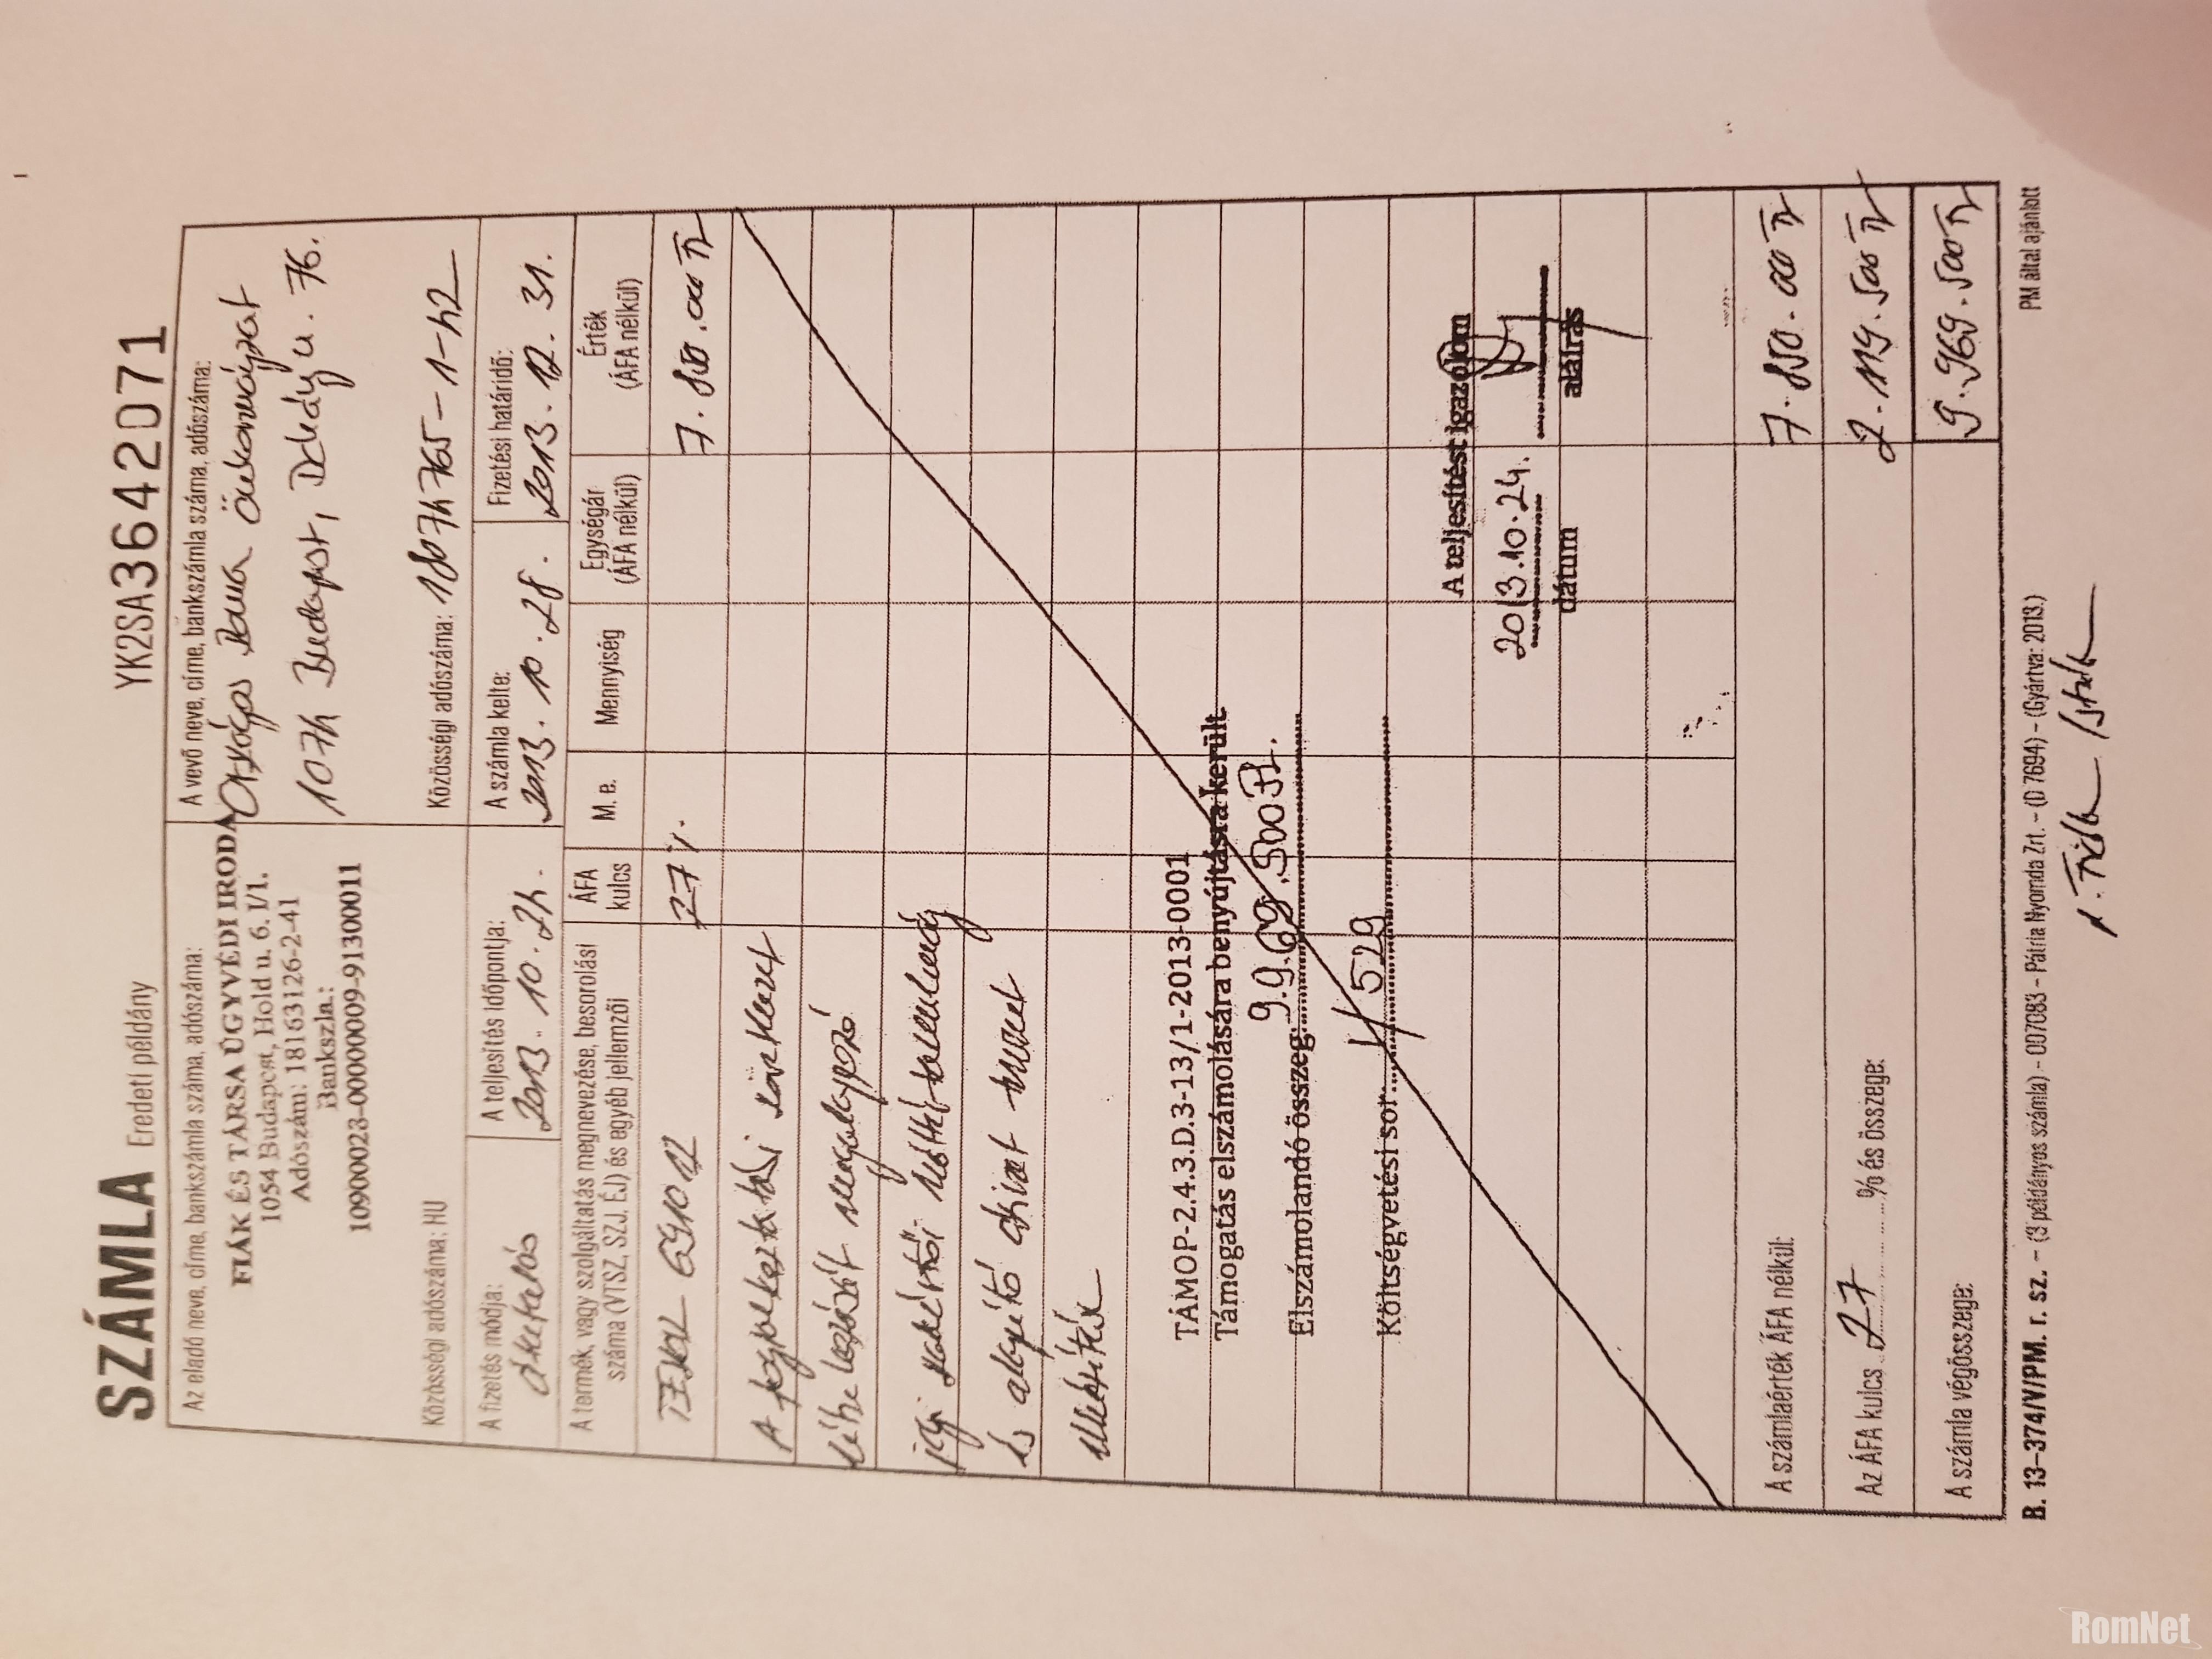 SZÁMLA Eredeti példány YK2SA3642071
Az eladó neve, címe, bankszámla száma, adószáma:
FIÁK ÉS TÁRSA ÜGYVÉDI IRODA
1054 Budapest, Hold u. 6. I/1.
Adószám: 18163126-2-41
Bankszla.:
10900023-00000009-91300011
Közösségi adószáma: HU
A vevő neve, címe, bankszámla száma, adószáma:
Országos Roma Önkormányzat
1074 Budapest, Dohány u. 76.
Közösségi adószáma: 18074765-1-42
A fizetés módja:
átutalás
A teljesítés időpontja:
2013. 10. 24.
A számla kelte:
2013. 10. 28.
Fizetési határidő:
2013. 12. 31.
A termék, vagy szolgáltatás megnevezése, besorolási
száma (VTSZ, SZJ, ÉJ) és egyéb jellemzői
ÁFA
kulcs
M. e.
Mennyiség
Egységár
(ÁFA nélkül)
Érték
(ÁFA nélkül)
TESZOR 691012 27% 7.850.000 Ft
A foglalkoztatási szövetkezet
létrehozását megalapozó
jogi szakértői
és alapító okirat tervezet
elkészítése
TÁMOP-2.4.3.D.3-13/1-2013-0001
Támogatás elszámolására benyújtásra került
Elszámolandó összeg: 9.969.500 Ft.
Költségvetési sor: 529
A teljesítést igazolom
2013.10.24.
dátum aláírás
A számlaérték ÁFA nélkül: 7.850.000 Ft
Az ÁFA kulcs 27 % és összege: 2.119.500 Ft
A számla végösszege: 9.969.500 Ft
B. 13-374/V/PM. r. sz. – (3 példányos számla) – 007083 – Pátria Nyomda Zrt. – (D 7694) – (Gyártva: 2013.) PM által ajánlott
RomNet